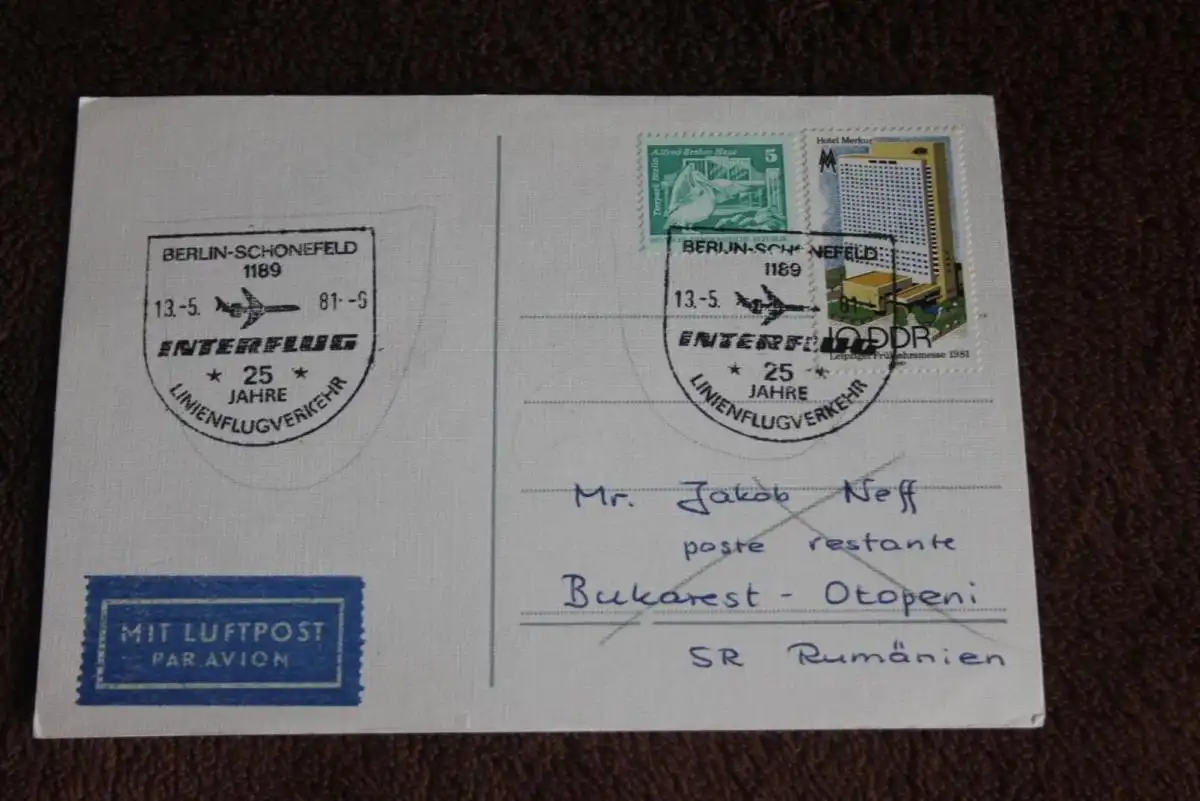 Alfred-Brehm-Haus
5
Tierpark Berlin
Hotel Merkur
10 DDR
Leipziger Frühjahrsmesse 1981
BERLIN-SCHÖNEFELD
1189
13.-5. 81.-
INTERFLUG
★ 25 ★
JAHRE
LINIENFLUGVERKEHR
BERLIN-SCHÖNEFELD
1189
13.-5. 81.-
INTERFLUG
★ 25 ★
JAHRE
LINIENFLUGVERKEHR
Mr. Jakob Neff
poste restante
Bukarest - Otopeni
SR Rumänien
MIT LUFTPOST
PAR AVION